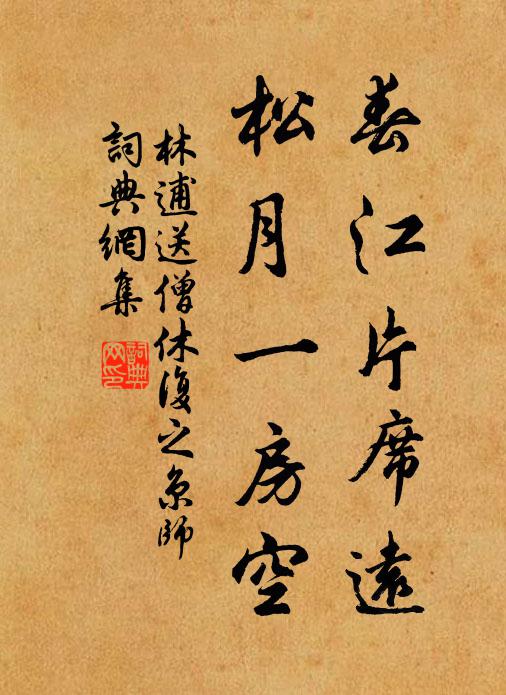 春江片席遠
松月一房空
林逋送僧休復之京師
詞典網集
詞典網印